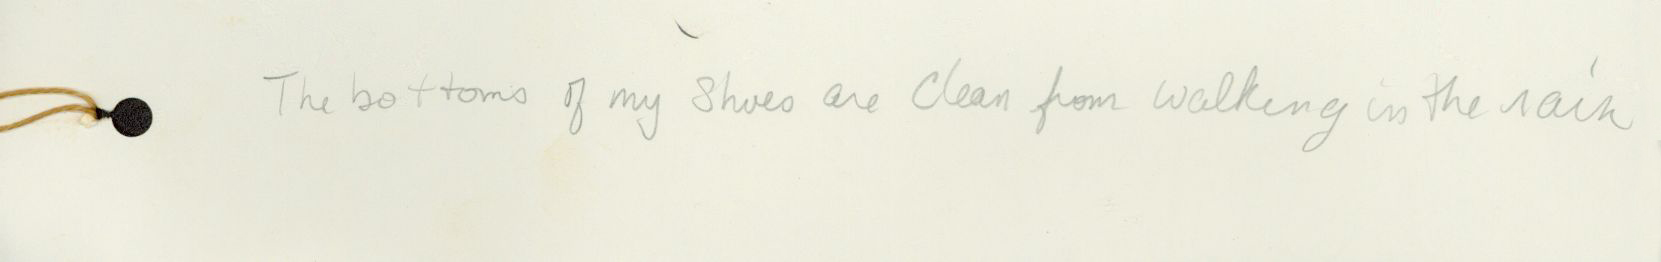 The bottoms of my Shoes are Clean from walking in the rain